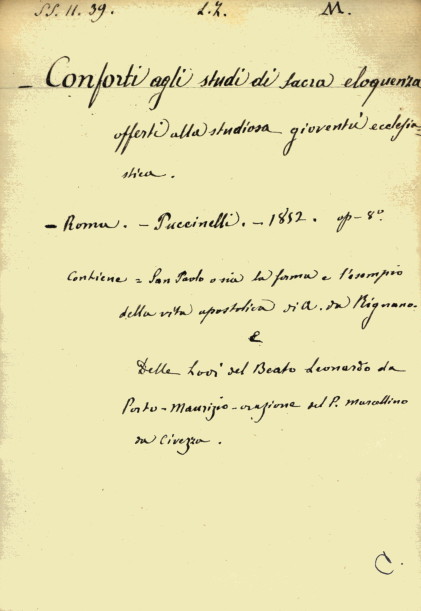 SS. 11. 39. L. Z. M.
- Conforti agli studi di sacra eloquenza
offerti alla studiosa gioventù ecclesia=
stica.
- Roma. - Puccinelli. - 1852. op - 8º
Contiene = San Paolo o sia la forma e l'esempio
della vita apostolica di A. da Rignano.
E
Delle Lodi del Beato Leonardo da
Porto-Maurizio - orazione del P. Marcellino
da Civezza.
C.